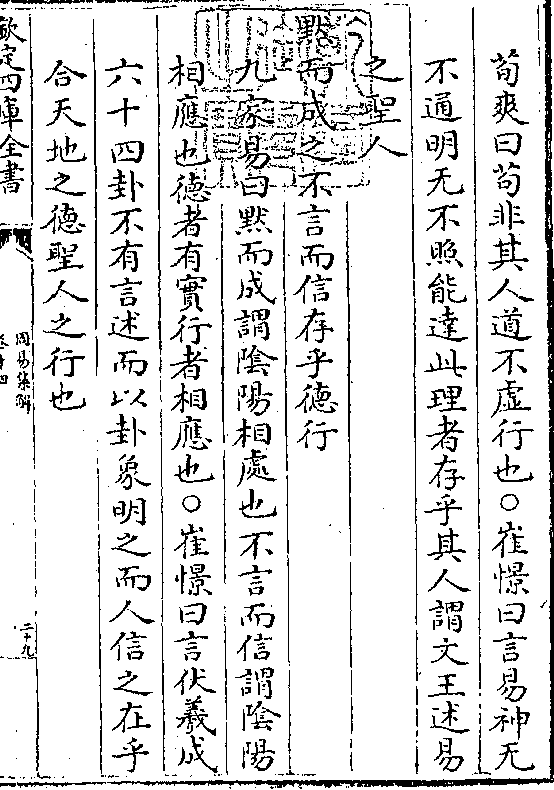 荀爽曰苟非其人道不虛行也○崔憬曰言易神无
不通明无不照能達此理者存乎其人謂文王述易
之聖人
黙而成之不言而信存乎德行
九家易曰黙而成謂陰陽相處也不言而信謂陰陽
相應也德者有實行者相應也○崔憬曰言伏羲成
六十四卦不有言述而以卦象明之而人信之在乎
合天地之德聖人之行也
欽定四庫全書
周易集解
卷十四
二十九